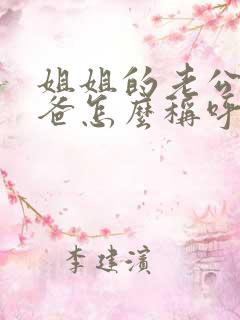 姐姐的老公
爸怎麼稱呼
李建濱